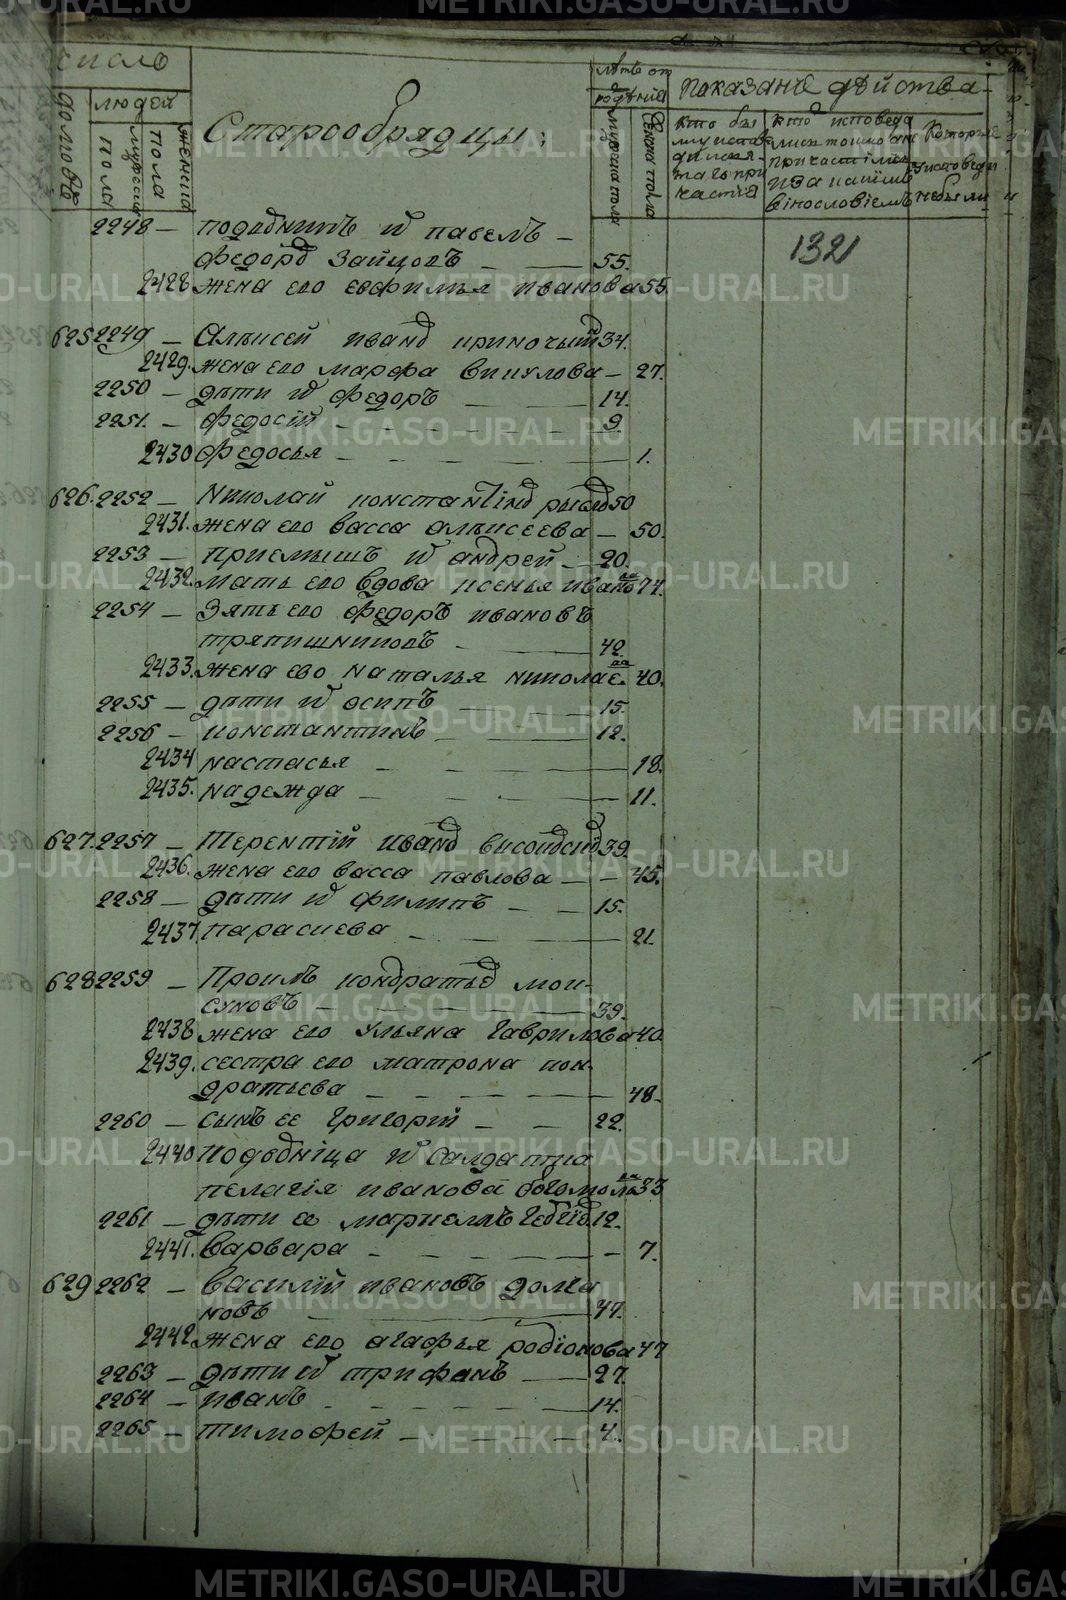 число
домовъ
людей
мужеска пола
женска пола
Старообрядцы:
лѣтъ от рожденія
мужеска пола
женска пола
Показанїе дѣйства
кто былъ у исповеди и святаго причастїя
кто исповедались токмо а не причастились и за каким винословїемъ
которые у исповеди не были
1321
2248 — подѣнникъ их павелъ
федоров Зайцовъ — 55.
2428 жена ево евфимья иванова 55.
625 2249 — Алексей иванов 34.
2429 жена ево марфа викулова — 27.
2250 — дѣти их федоръ — 14.
2251. — федосїй — 9.
2430 федосья — 1.
626. 2252 — Николай константїнов рысев 50
2431. жена ево васса алексеева — 50.
2253 — приемышъ их андрей — 20.
2432. мать ево вдова ксенья иванова 74.
2254 — Зять ево федоръ ивановъ
тряпишниковъ — 42.
2433. жена ево наталья николаева 40.
2255 — дѣти их осипъ — 15.
2256 — константинъ — 12.
2434 настасья — 18.
2435. надежда — 11.
627. 2257 — Терентїй иванов 39.
2436. жена ево васса павлова — 45.
2258 — дѣти их филипъ — 15.
2437. параскева — 21
628 2259 — Проклъ кондратьев мок-
суновъ — 39.
2438 жена ево ульяна гаврилова 40.
2439. сестра ево матрона кон-
дратьева — 48.
2260 — сынъ ее григорїй — 22.
2440 подѣнніца их салдатка
пелагїя иванова богомолова 33
2261 — дѣти ее маркеллъ 12.
2441. варвара — 7.
629 2262 — василїй ивановъ долга
новъ — 47.
2442. жена ево агафья родїонова 47
2263 — дѣти их трифанъ — 27
2264 — иванъ — 14.
2265 — тимофей — 4.
METRIKI.GASO-URAL.RU